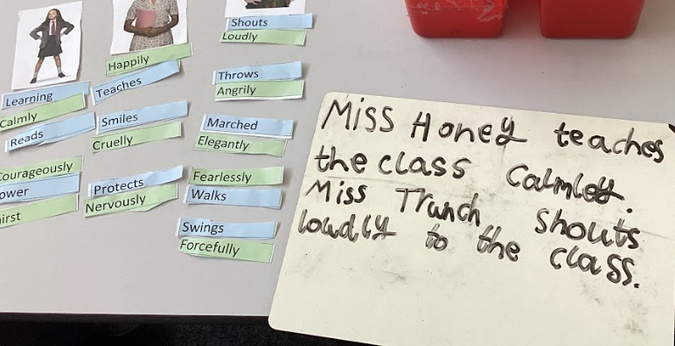 Learning
Calmly
Reads
Courageously
ower
hirst
Happily
Teaches
Smiles
Cruelly
Protects
Nervously
Shouts
Loudly
Throws
Angrily
Marched
Elegantly
Fearlessly
Walks
Swings
Forcefully
Miss Honey teaches
the class Calmley.
Miss Trunch shouts
loudly to the class.